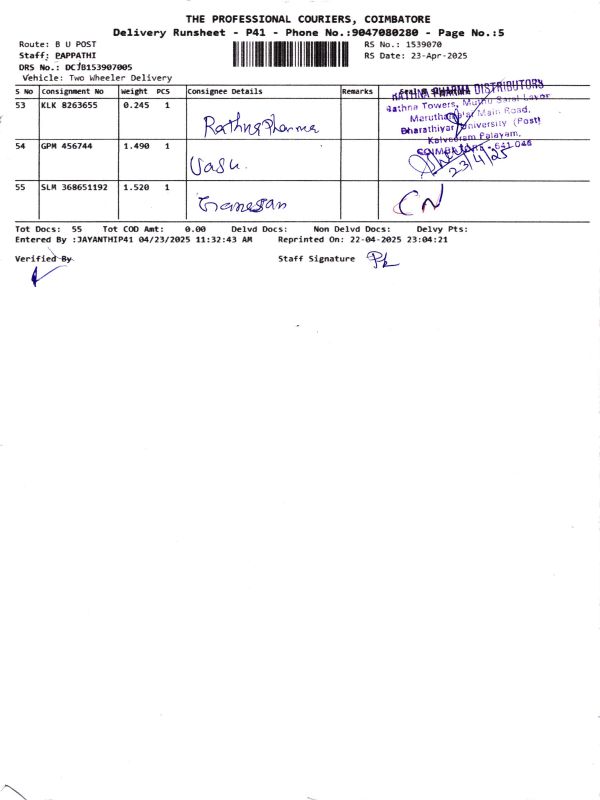 THE PROFESSIONAL COURIERS, COIMBATORE
Delivery Runsheet - P41 - Phone No.:9047080280 - Page No.:5
Route: B U POST
RS No.: 1539070
Staff: PAPPATHI
RS Date: 23-Apr-2025
DRS No.: DC/B153907005
Vehicle: Two Wheeler Delivery
S No Consignment No Weight PCS Consignee Details Remarks
53 KLK 8263655 0.245 1 Rathna Pharma
RATHNA PHARMA DISTRIBUTORS
Rathna Towers,
Main Road,
Bharathiyar University (Post)
Kalveeram Palayam,
COIMBATORE - 641 046
54 GPM 456744 1.490 1 Vasu.
23/4/25
55 SLM 368651192 1.520 1 Ganesan
CN
Tot Docs: 55 Tot COD Amt: 0.00 Delvd Docs: Non Delvd Docs: Delvy Pts:
Entered By :JAYANTHIP41 04/23/2025 11:32:43 AM Reprinted On: 22-04-2025 23:04:21
Verified By
Staff Signature